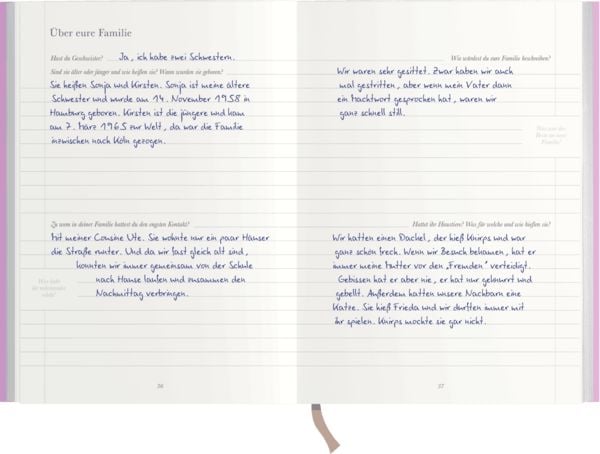 Über eure Familie
Hast du Geschwister? Ja, ich habe zwei Schwestern.
Sind sie älter oder jünger und wie heißen sie? Wann wurden sie geboren?
Sie heißen Sonja und Kirsten. Sonja ist meine ältere
Schwester und wurde am 14. November 1958 in
Hamburg geboren. Kirsten ist die jüngere und kam
am 7. März 1965 zur Welt, da war die Familie
inzwischen nach Köln gezogen.
Zu wem in deiner Familie hattest du den engsten Kontakt?
Mit meiner Cousine Ute. Sie wohnte nur ein paar Häuser
die Straße runter. Und da wir fast gleich alt sind,
konnten wir immer gemeinsam von der Schule
nach Hause laufen und zusammen den
Nachmittag verbringen.
Was habt
ihr miteinander
erlebt?
36
Wie würdest du eure Familie beschreiben?
Wir waren sehr gesittet. Zwar haben wir auch
mal gestritten, aber wenn mein Vater dann
ein Machtwort gesprochen hat, waren wir
ganz schnell still.
Was war das
Beste an eurer
Familie?
Hattet ihr Haustiere? Was für welche und wie hießen sie?
Wir hatten einen Dackel, der hieß Knirps und war
ganz schön frech. Wenn wir Besuch bekamen, hat er
immer meine Mutter vor den „Fremden" verteidigt.
Gebissen hat er aber nie, er hat nur geknurrt und
gebellt. Außerdem hatten unsere Nachbarn eine
Katze. Sie hieß Frieda und wir durften immer mit
ihr spielen. Knirps mochte sie gar nicht.
37